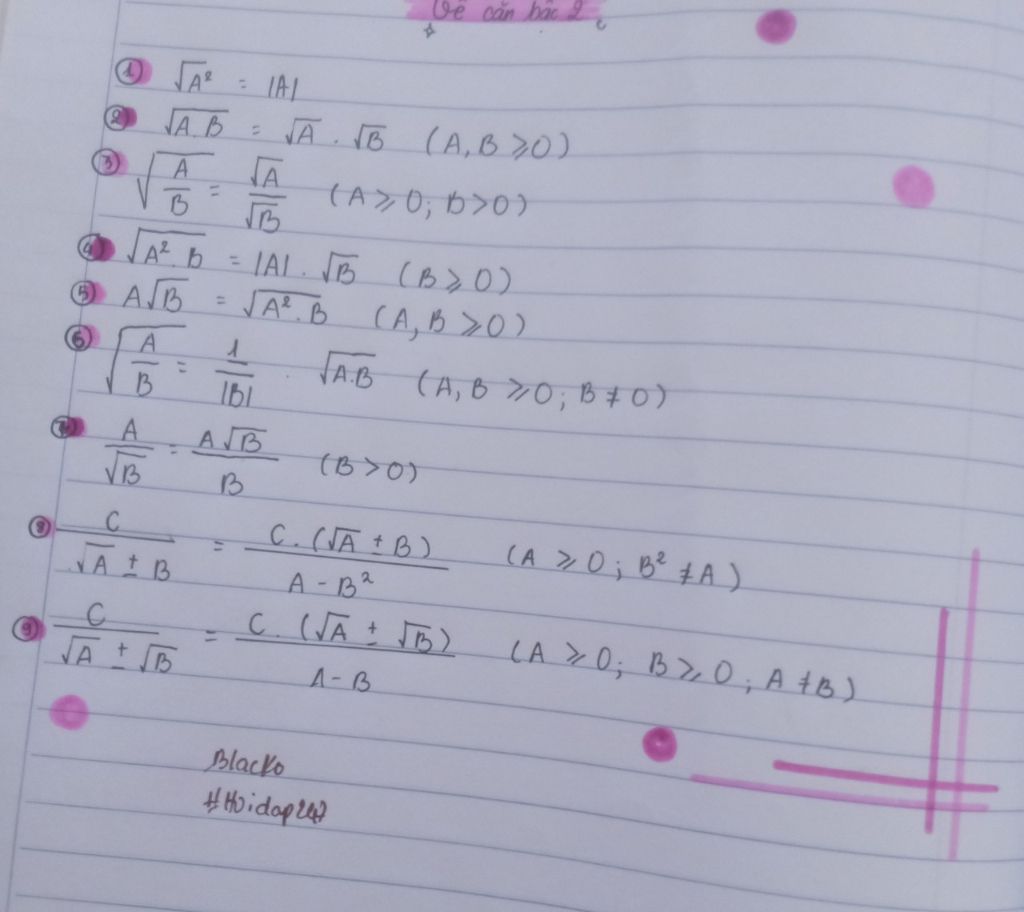 Về căn bậc 2
1) √A² = |A|
2) √A.B = √A . √B (A, B ≥ 0)
3) √(A/B) = √A/√B (A ≥ 0; b > 0)
4) √A².B = |A| . √B (B ≥ 0)
5) A√B = √A².B (A, B ≥ 0)
6) √(A/B) = 1/|B| . √A.B (A, B ≥ 0; B ≠ 0)
7) A/√B = A√B/B (B > 0)
8) C/(√A ± B) = C.(√A ± B)/(A - B²) (A ≥ 0; B² ≠ A)
9) C/(√A ± √B) = C.(√A ± √B)/(A - B) (A ≥ 0; B ≥ 0; A ≠ B)
Blacko
#Hoidap247